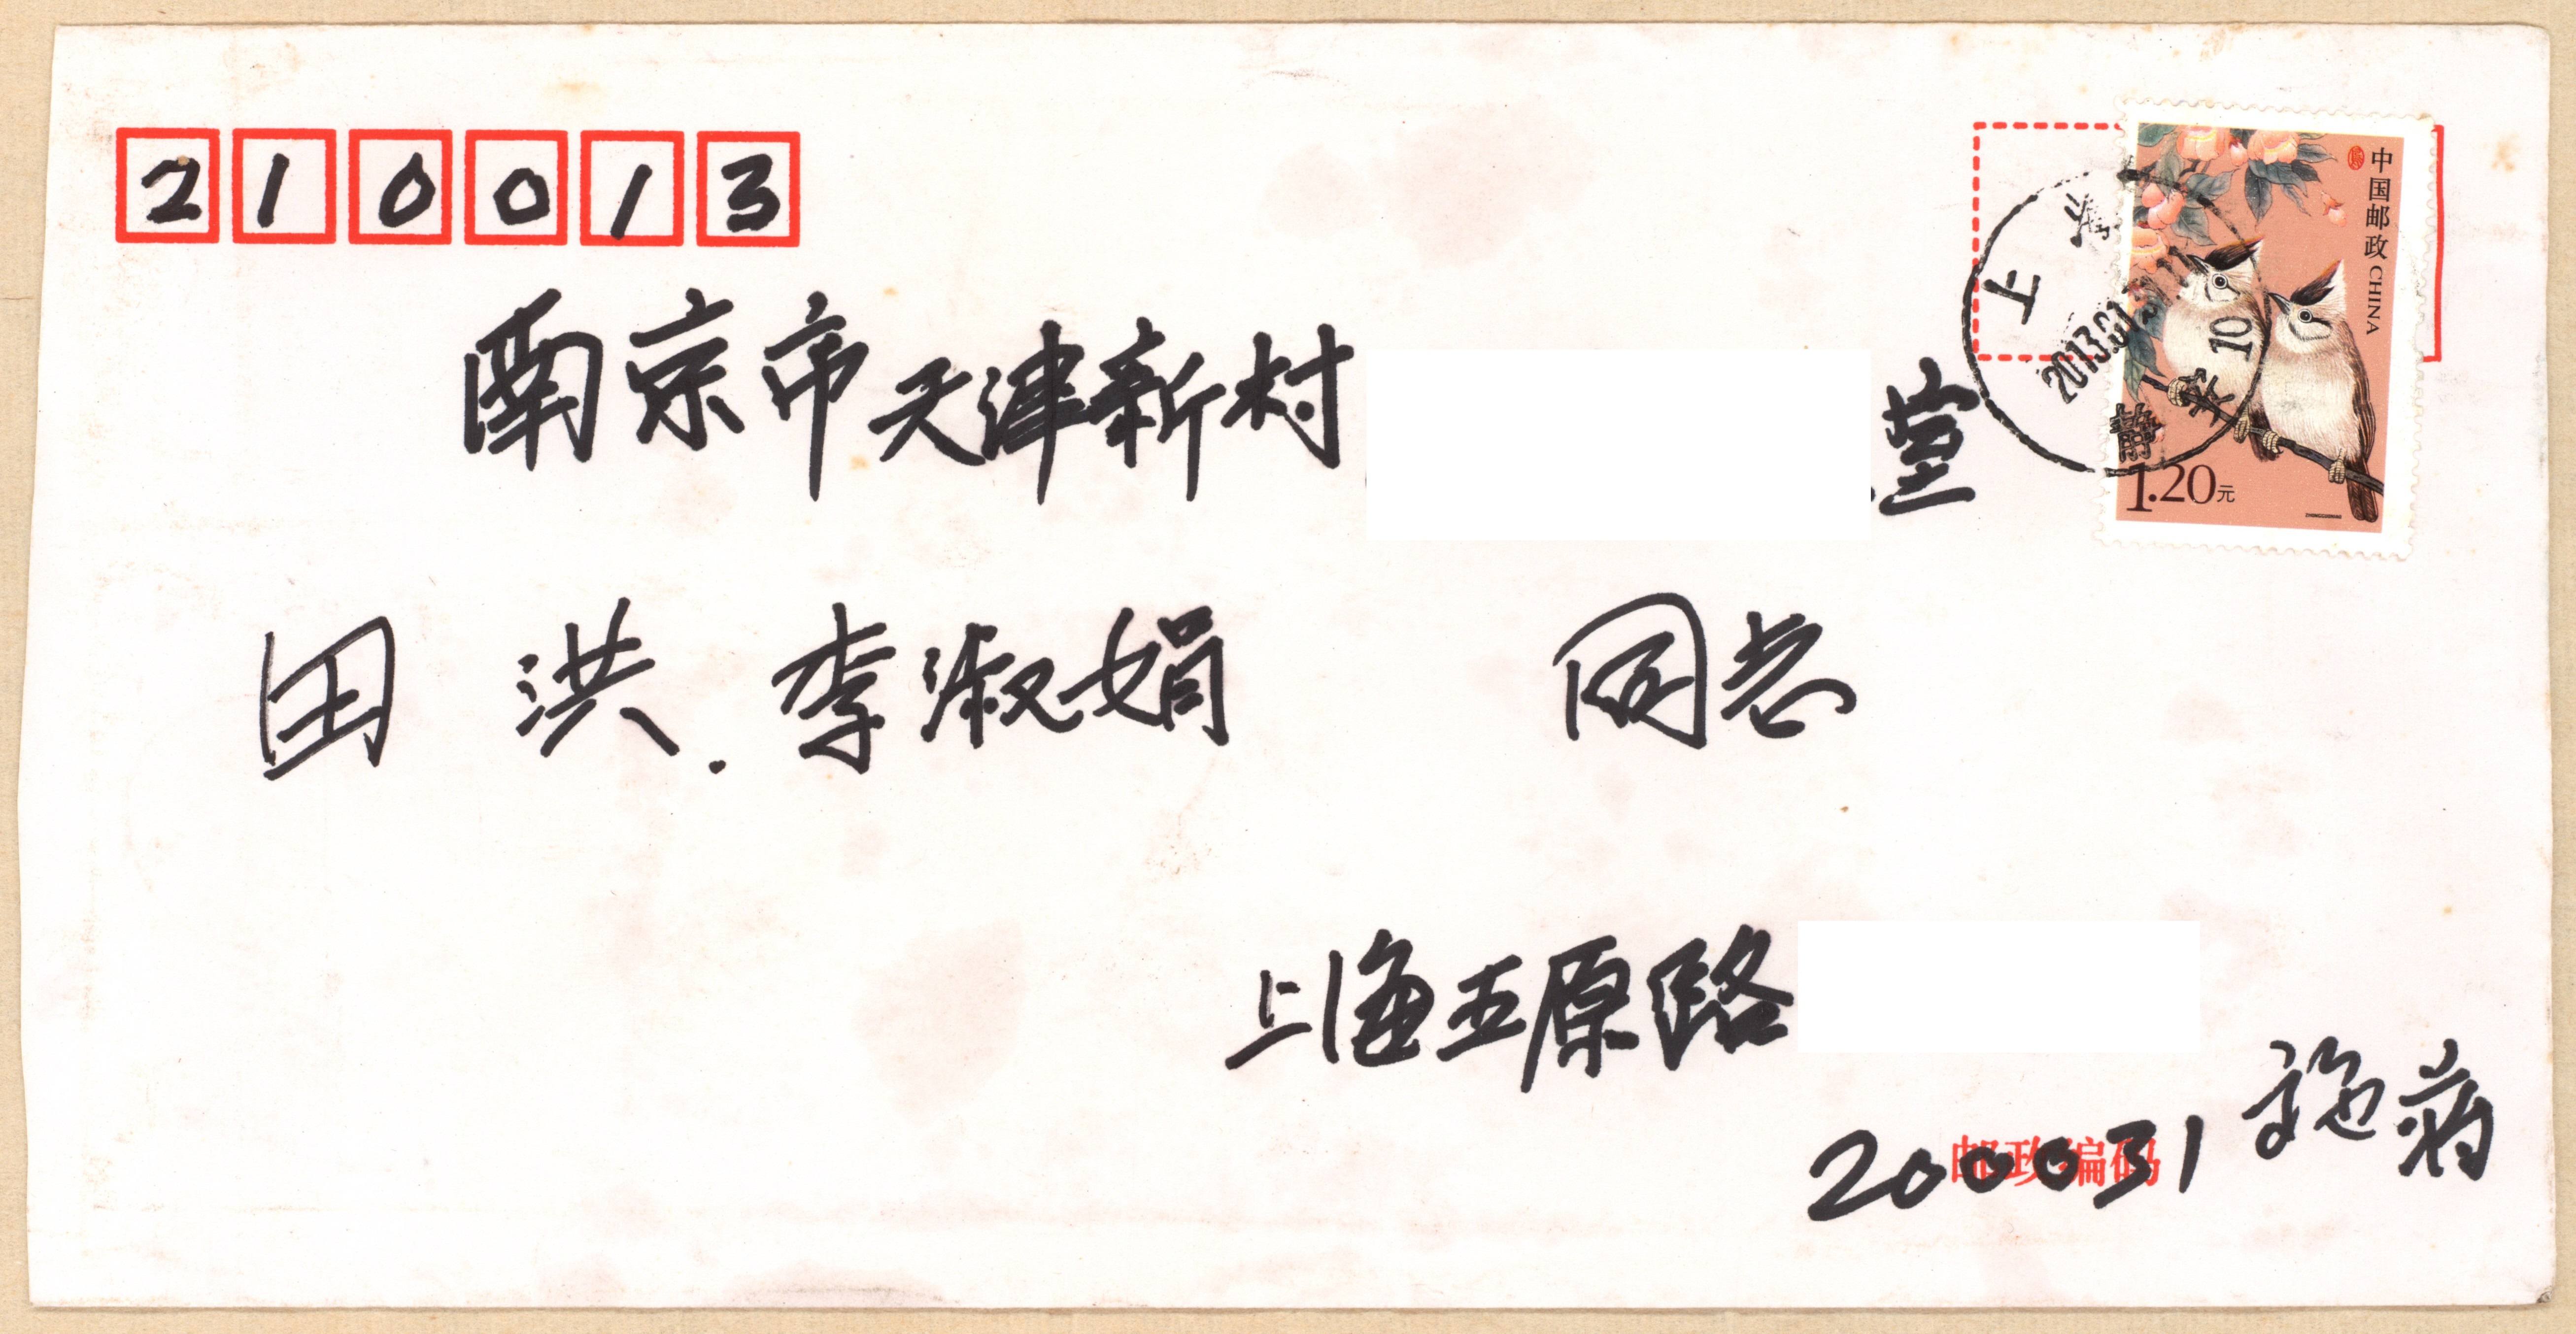 210013
中国邮政 CHINA
南京市天津新村 室
上海
2013.01
10
静安
1.20元
田洪.李淑娟 同志
上海五原路
200031
邮政编码
施蒋